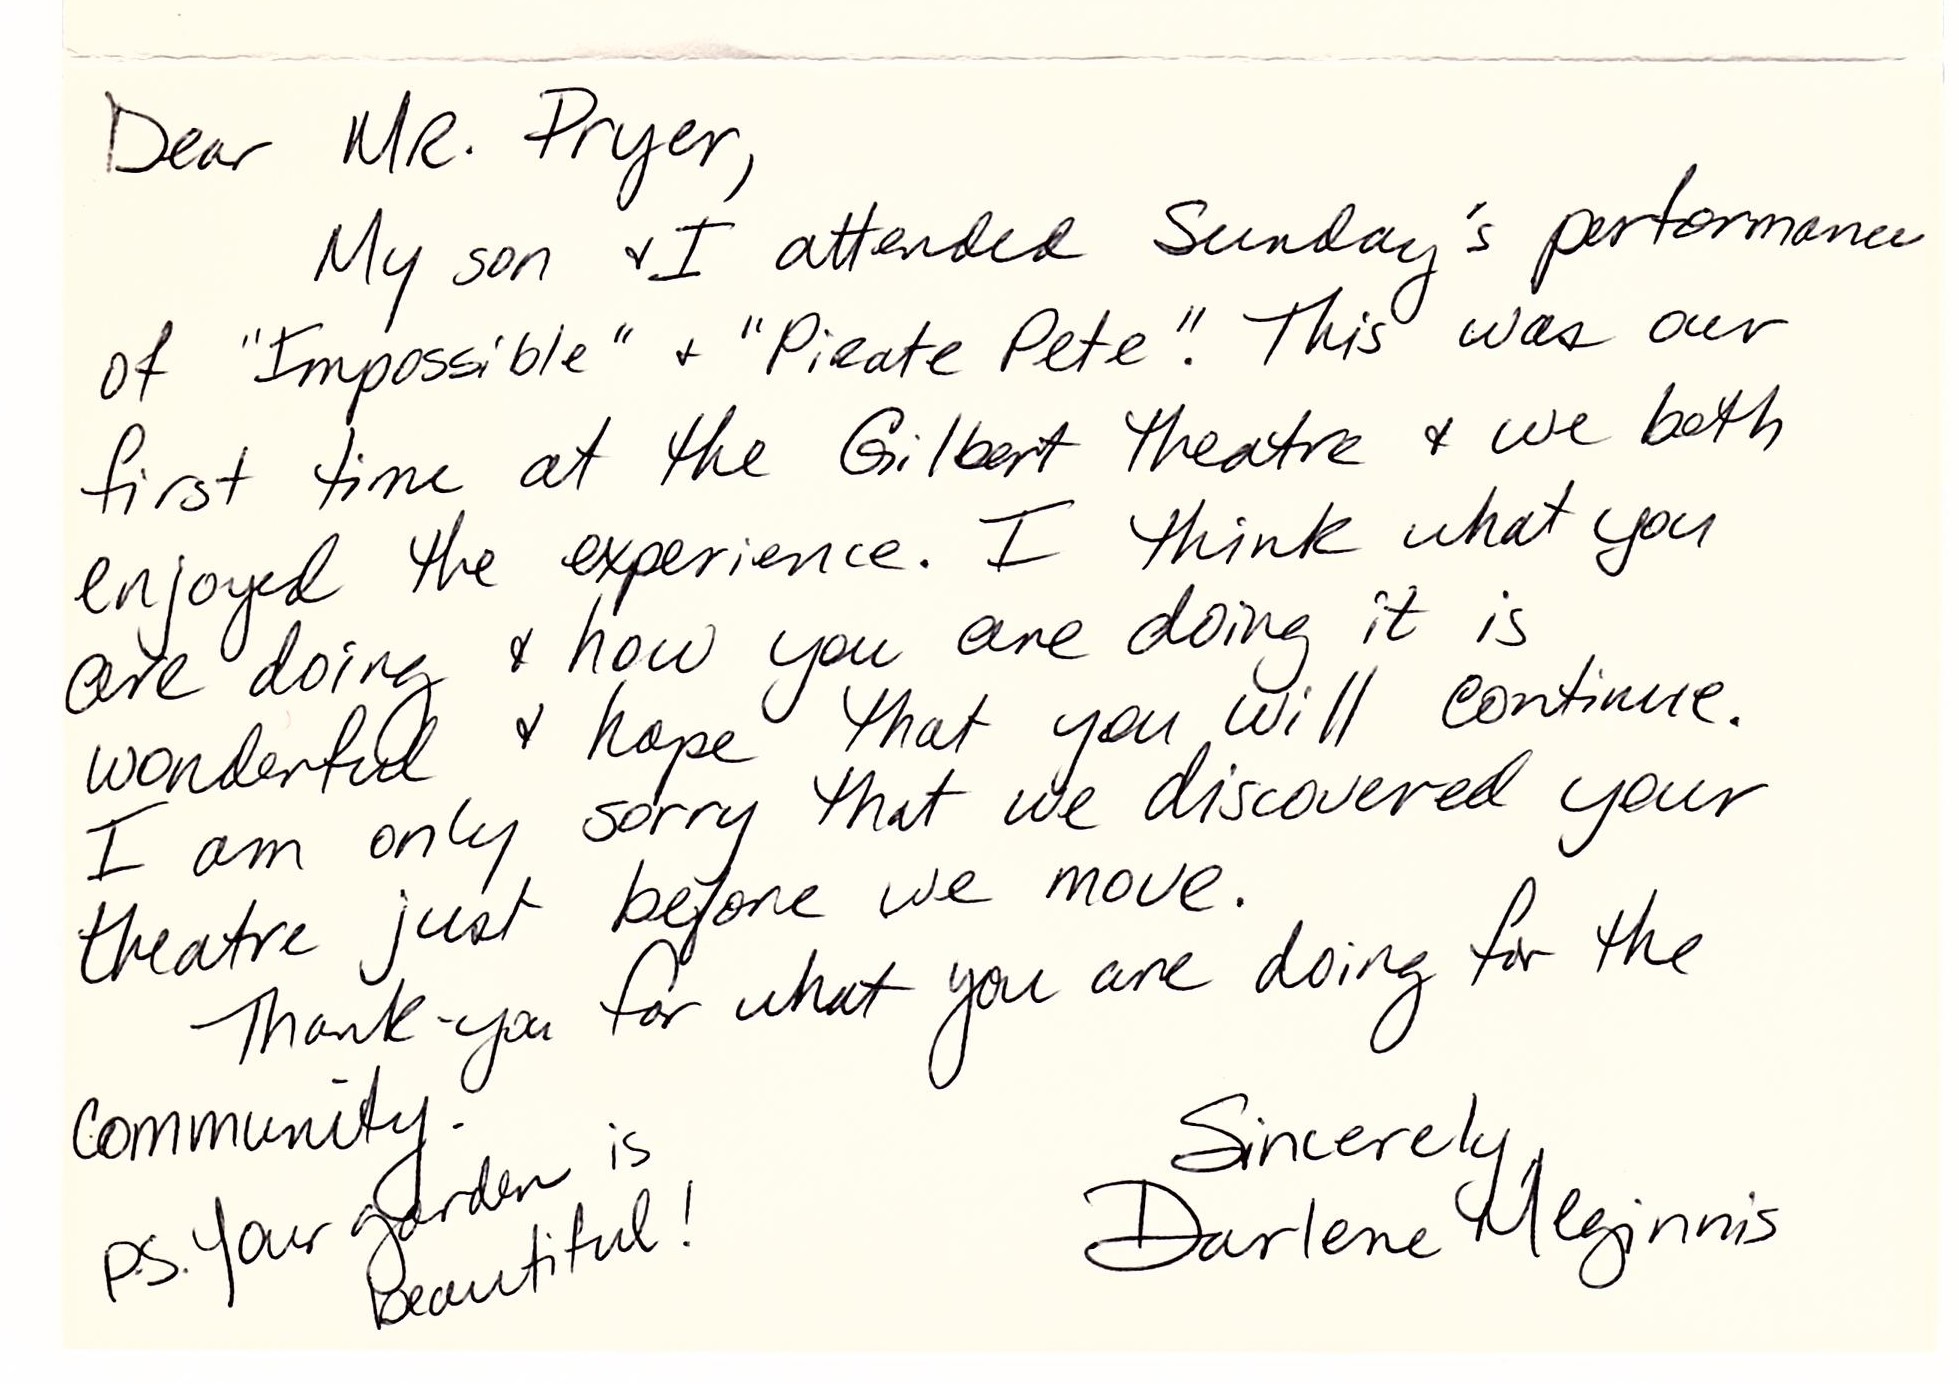 Dear MR. Pryer,
My son & I attended Sunday's performance
of "Impossible" + "Pirate Pete". This was our
first time at the Gilbert Theatre & we both
enjoyed the experience. I think what you
are doing & how you are doing it is
wonderful & hope that you will continue.
I am only sorry that we discovered your
theatre just before we move.
Thank-you for what you are doing for the
community.
Sincerely,
Darlene Meginnis
P.S. Your garden is
beautiful!